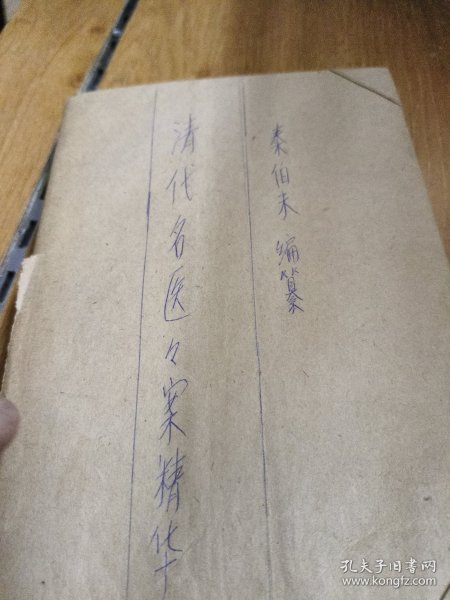 秦伯未 编纂
清代名医々案精华
孔夫子旧书网
www.kongfz.com